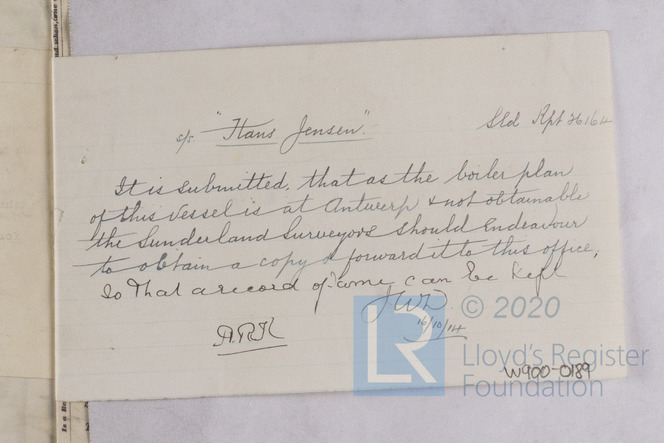 s/s. "Hans Jensen". Sld Rpt 26164
It is submitted, that as the boiler plan
of this vessel is at Antwerp & not obtainable
the Sunderland Surveyors should Endeavour
to obtain a copy & forward it to this office,
so that a record of same can be kept
JWD.
16/10/14
A.R.K
© 2020
LR
Lloyd's Register
Foundation
W900-0189